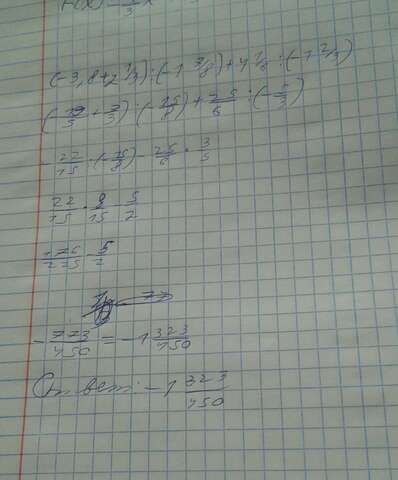 (-3,8+2 1/3):(-1 7/8)+4 1/6:(-1 2/3)
(-19/5+7/3):(-15/8)+25/6:(-5/3)
-22/15:(-15/8)-25/6·3/5
22/15·8/15-5/2
176/225-5/2
-773/450=-1 323/450
Ответ:-1 323/450